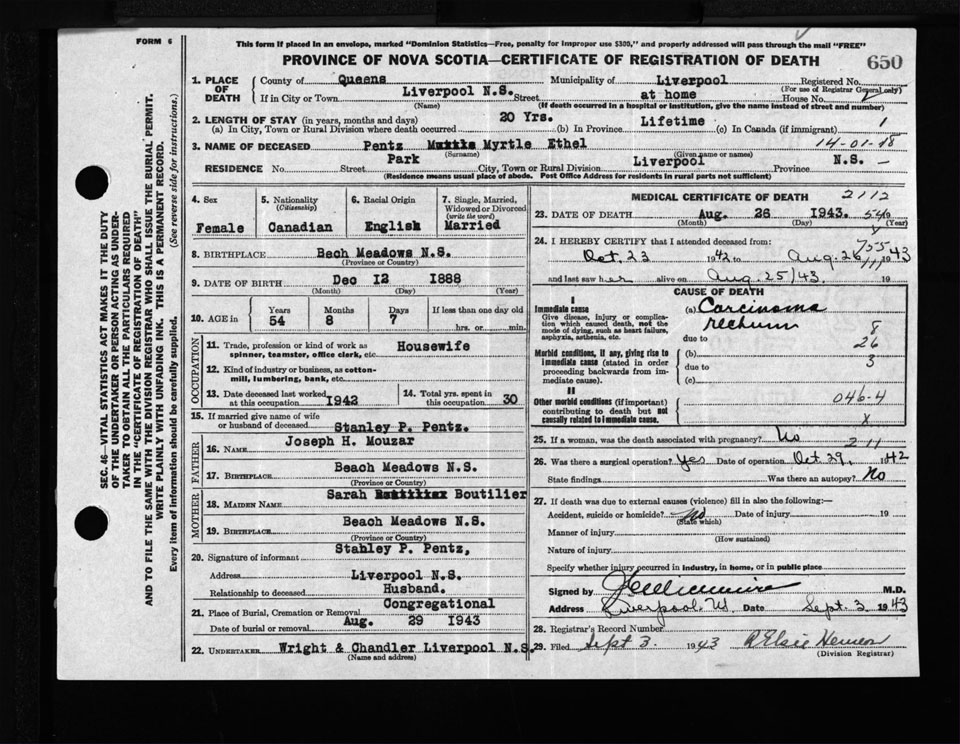 FORM 6
This form if placed in an envelope, marked "Dominion Statistics—Free, penalty for improper use $300," and properly addressed will pass through the mail "FREE"
PROVINCE OF NOVA SCOTIA—CERTIFICATE OF REGISTRATION OF DEATH
650
SEC. 46—VITAL STATISTICS ACT MAKES IT THE DUTY
OF THE UNDERTAKER OR PERSON ACTING AS UNDER-
TAKER TO OBTAIN ALL THE PARTICULARS REQUIRED
IN THE "CERTIFICATE OF REGISTRATION OF DEATH"
AND TO FILE THE SAME WITH THE DIVISION REGISTRAR WHO SHALL ISSUE THE BURIAL PERMIT.
WRITE PLAINLY WITH UNFADING INK. THIS IS A PERMANENT RECORD.
Every item of information should be carefully supplied. (See reverse side for instructions.)
1. PLACE OF DEATH
County of Queens Municipality of Liverpool Registered No.
(For use of Registrar General only)
If in City or Town Liverpool N.S. Street at home House No.
(Name) (If death occurred in a hospital or institution, give the name instead of street and number)
2. LENGTH OF STAY (in years, months and days)
(a) In City, Town or Rural Division where death occurred 20 Yrs. (b) In Province Lifetime (c) In Canada (if immigrant) 1
3. NAME OF DECEASED Pentz Myrtle Ethel 14-01-18
(Surname) (Given name or names)
RESIDENCE No. Street Park City, Town or Rural Division Liverpool Province N.S. —
(Residence means usual place of abode. Post Office Address for residents in rural parts not sufficient)
4. Sex
Female
5. Nationality
(Citizenship)
Canadian
6. Racial Origin
English
7. Single, Married, Widowed or Divorced
(write the word)
Married
8. BIRTHPLACE Bech Meadows N.S.
(Province or Country)
9. DATE OF BIRTH Dec 12 1888
(Month) (Day) (Year)
10. AGE in Years Months Days If less than one day old
54 8 7 hrs. or min.
OCCUPATION
11. Trade, profession or kind of work as
spinner, teamster, office clerk, etc. Housewife
12. Kind of industry or business, as cotton-
mill, lumbering, bank, etc.
13. Date deceased last worked
at this occupation 1942
14. Total yrs. spent in
this occupation 30
15. If married give name of wife
or husband of deceased Stanley P. Pentz.
FATHER
16. NAME Joseph H. Mouzar
17. BIRTHPLACE Beach Meadows N.S.
(Province or Country)
MOTHER
18. MAIDEN NAME Sarah Boutilier
19. BIRTHPLACE Beach Meadows N.S.
(Province or Country)
20. Signature of informant Stahley P. Pentz,
Address Liverpool N.S.
Relationship to deceased Husband.
21. Place of Burial, Cremation or Removal Congregational
Date of burial or removal Aug. 29 1943
22. UNDERTAKER Wright & Chandler Liverpool N.S.
(Name and address)
MEDICAL CERTIFICATE OF DEATH 2112
23. DATE OF DEATH Aug. 26 1943. 546
(Month) (Day) (Year)
24. I HEREBY CERTIFY that I attended deceased from: 755
Oct. 23 1942 to Aug. 26 1943
and last saw her alive on Aug. 25/43 19
CAUSE OF DEATH
I
Immediate cause
Give disease, injury or complica-
tion which caused death, not the
mode of dying, such as heart failure,
asphyxia, asthenia, etc.
(a) Carcinoma
rechum 8
due to 26
Morbid conditions, if any, giving rise to
immediate cause (stated in order
proceeding backwards from im-
mediate cause).
(b) 3
due to
(c)
II
Other morbid conditions (if important)
contributing to death but not
causally related to immediate cause.
046-4
X
25. If a woman, was the death associated with pregnancy? No 211
26. Was there a surgical operation? Yes Date of operation Oct. 29, 1942
State findings Was there an autopsy? No
27. If death was due to external causes (violence) fill in also the following:—
Accident, suicide or homicide? No Date of injury 19
(State which)
Manner of injury
(How sustained)
Nature of injury
Specify whether injury occurred in industry, in home, or in public place
Signed by M.D.
Address Liverpool Date Sept. 3 1943
28. Registrar's Record Number
29. Filed Sept 3. 1943
(Division Registrar)